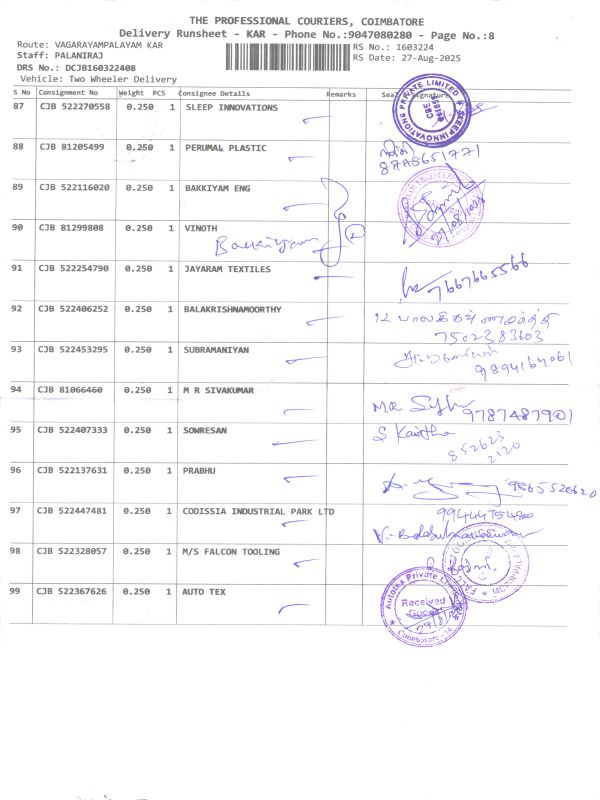 THE PROFESSIONAL COURIERS, COIMBATORE
Delivery Runsheet - KAR - Phone No.:9047080280 - Page No.:8
Route: VAGARAYAMPALAYAM KAR
RS No.: 1603224
Staff: PALANIRAJ
RS Date: 27-Aug-2025
DRS No.: DCJB160322408
Vehicle: Two Wheeler Delivery
S No Consignment No Weight PCS Consignee Details Remarks Seal & Signature
87 CJB 522270558 0.250 1 SLEEP INNOVATIONS
88 CJB 81205499 0.250 1 PERUMAL PLASTIC
8778651771
89 CJB 522116020 0.250 1 BAKKIYAM ENG
90 CJB 81299808 0.250 1 VINOTH
Bakkiyam
91 CJB 522254790 0.250 1 JAYARAM TEXTILES
7667665566
92 CJB 522406252 0.250 1 BALAKRISHNAMOORTHY
7502383603
93 CJB 522453295 0.250 1 SUBRAMANIYAN
9894164061
94 CJB 81066460 0.250 1 M R SIVAKUMAR
9787487901
95 CJB 522407333 0.250 1 SOWRESAN
S Kavitha
852623
2120
96 CJB 522137631 0.250 1 PRABHU
9865526620
97 CJB 522447481 0.250 1 CODISSIA INDUSTRIAL PARK LTD
9944475480
V. Balasubramaniam
98 CJB 522328057 0.250 1 M/S FALCON TOOLING
99 CJB 522367626 0.250 1 AUTO TEX
Received
Goods
27/8
Coimbatore - 14